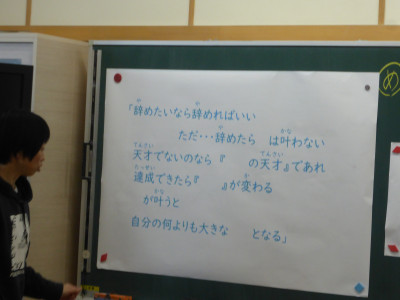 「辞めたいなら辞めればいい
ただ・・・辞めたら　　は叶わない
天才でないのなら『　　の天才』であれ
達成できたら『　　』が変わる
が叶うと
自分の何よりも大きな　　となる」
め